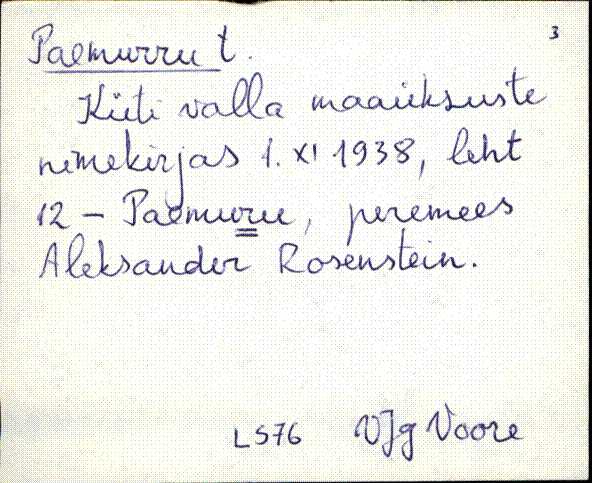 3
Paemurru t.
Küti valla maaüksuste
nimekirjas 1. XI 1938, leht
12 – Paemuru, peremees
Aleksander Rosenstein.
LS76 VJg Voore